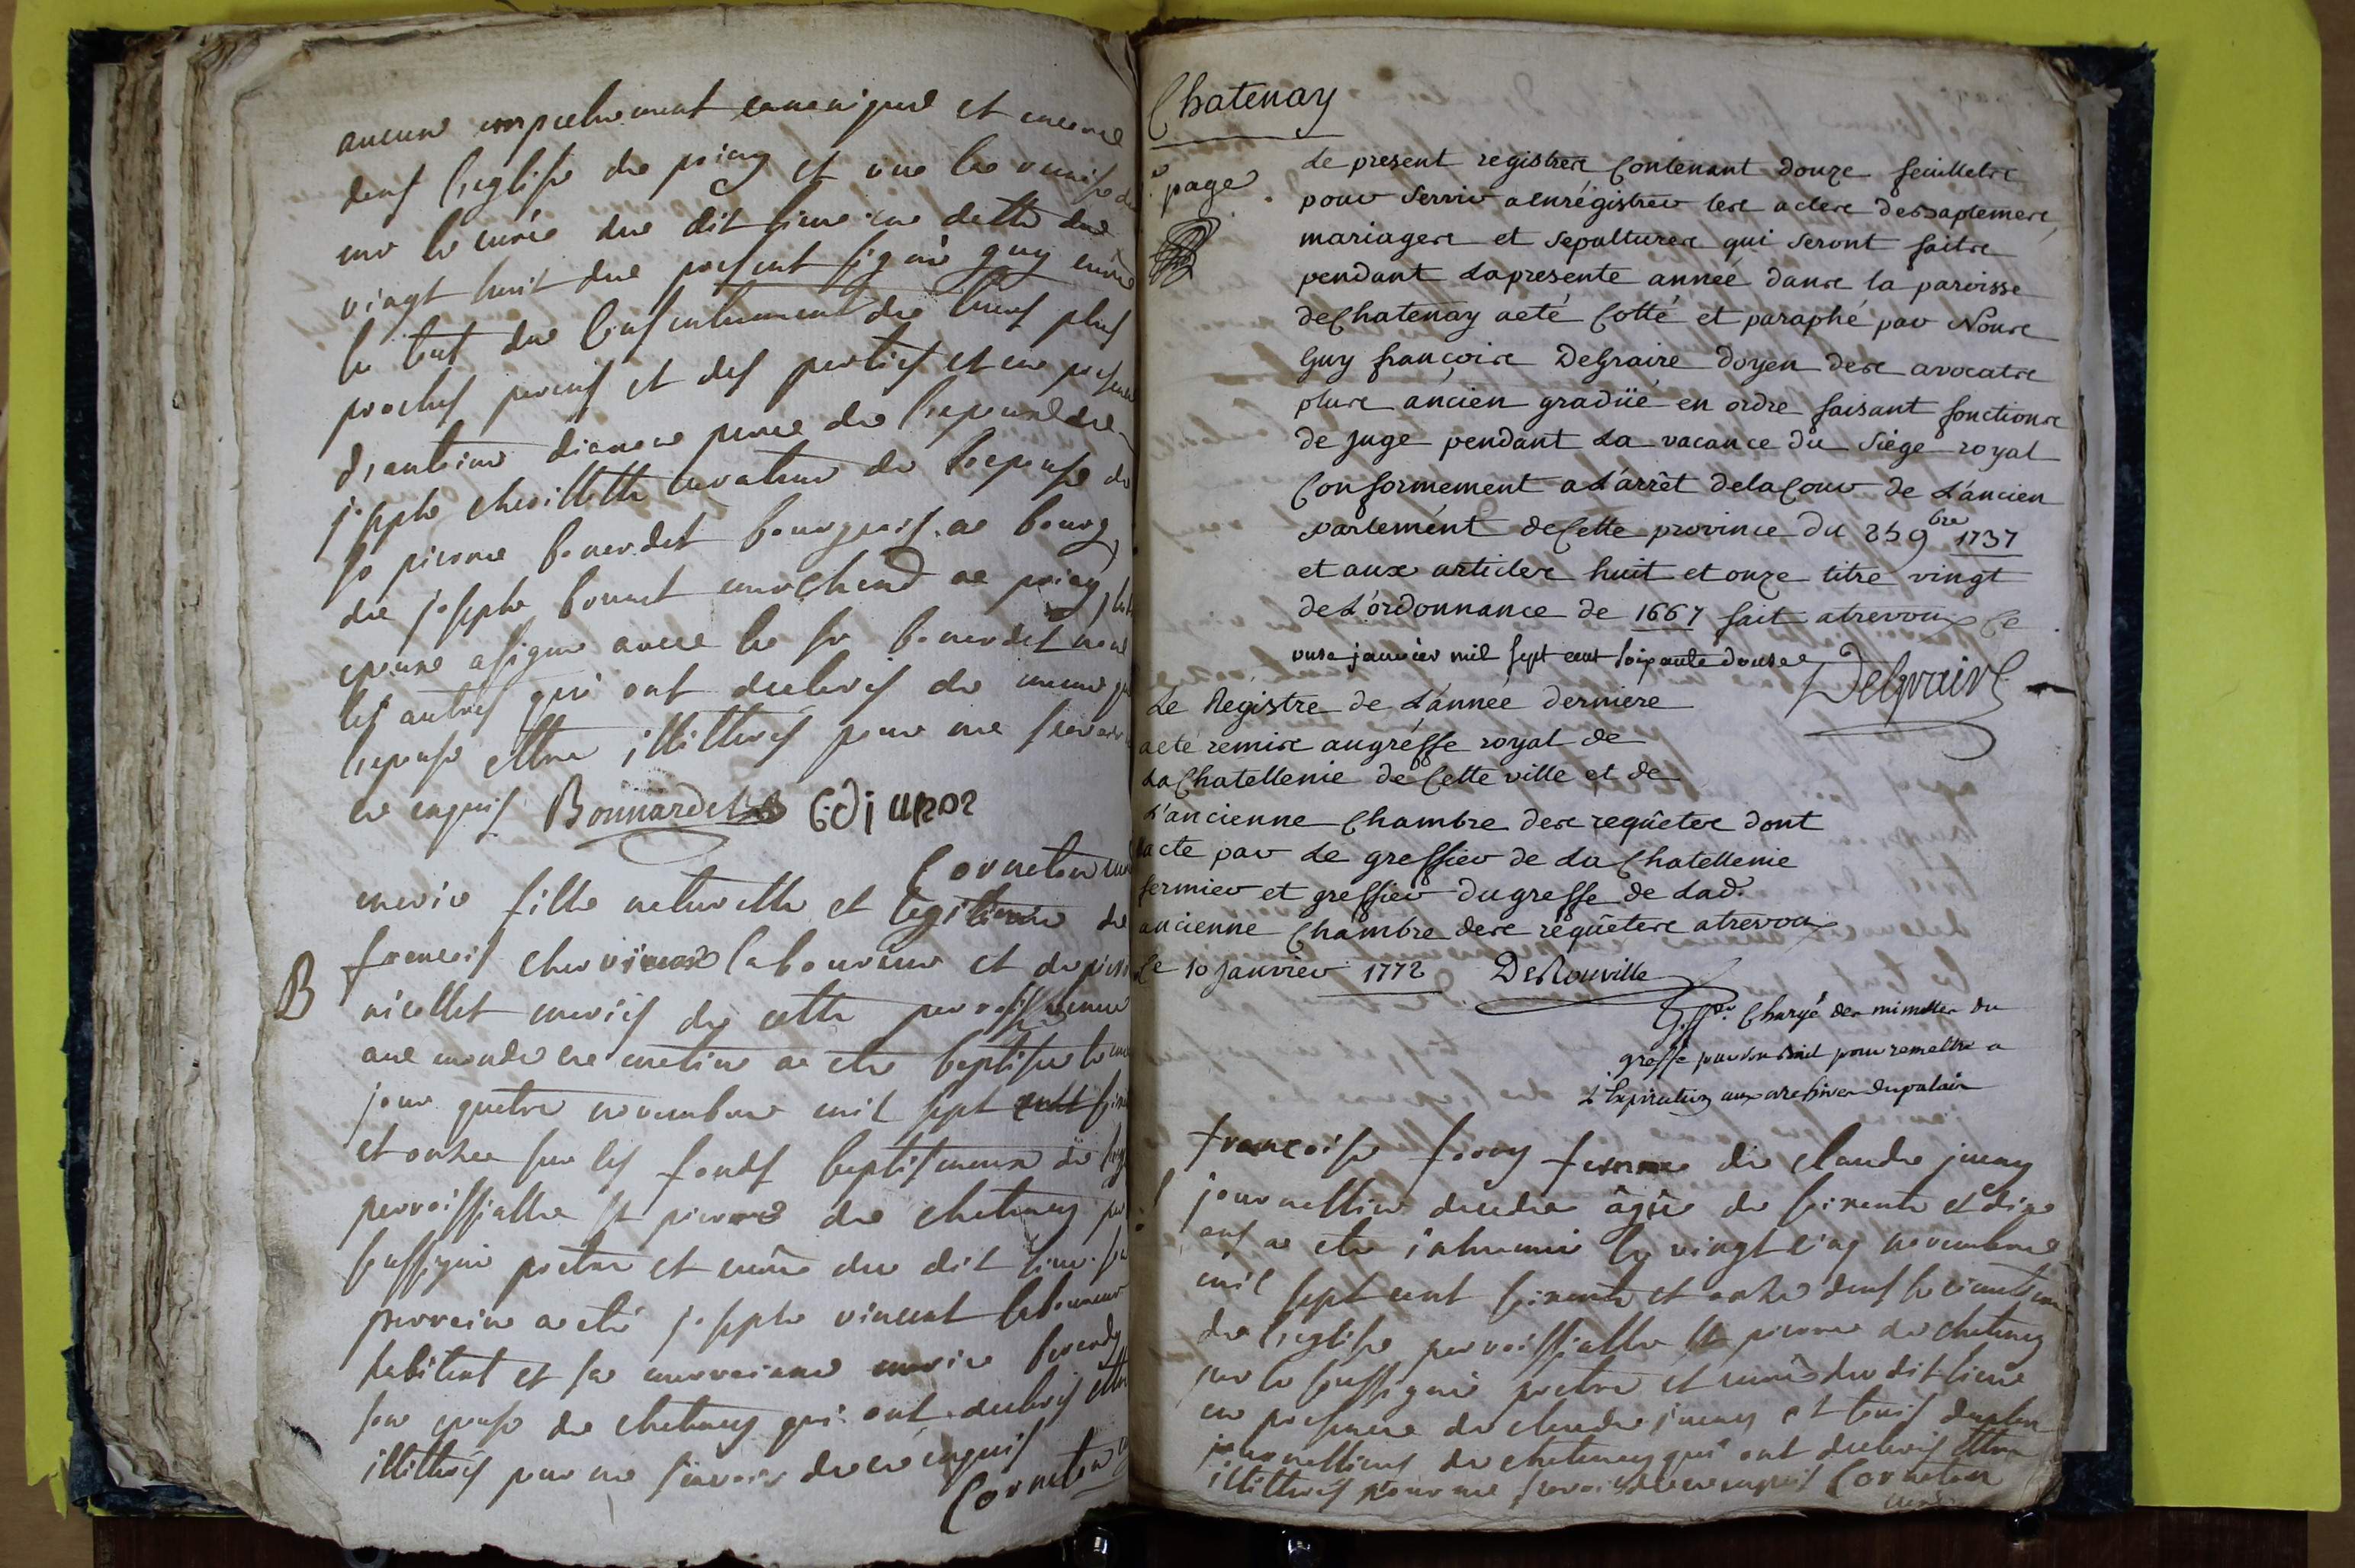 aucune empechement canonique et mesme
dans l'eglise de priay et vue la remise de
mr le curé du dit lieu en datte du
vingt huit du present signé guy curé
le tout du consentement de leurs plus
proches parens et des parties et en presence
d'antoine dianous pere de l'epouse de
joseph chevillette curateur de l'epouse de
sr pierre bonardet bourgeois a bourg
de joseph bonnet marchand a priay
epoux a signe avec le sr bonardet non
les autres qui ont declaré de meme que
l'epouse ettre illitterés pour ne savoir
en enquis Bonnardet
Corneton curé
marie fille naturelle et legitime de
B
francois laboureur et de pier
nicollet mariés de cette parroisse venue
au monde ce matin a eté baptisee le
jour quatre novembre mil sept cent soixa
et onze sur les fonds baptismaux de
parroissialle st pierre de chatenay par
soussigné pretre et curé du dit lieu sa
parrain a eté joseph vincent laboureur
habitant et sa marraine marie
son epouse de chatenay qui ont declaré ettre
illitterés pour ne savoir de ce enquis
Corneton
Chatenay
page
Le present registre Contenant douze feuillets
pour servir a enrégistrer les actes de Baptemes,
mariages et sepultures qui seront faits
pendant La presente année dans la paroisse
de Chatenay a eté Cotté et paraphé par Nous
Guy françois DeGraire Doyen des avocats
plus áncien gradüé en ordre faisant fonctions
de juge pendant La vacance du Siége royal
Conformement a L'arrêt de la Cour de L'ancien
parlement de Cette province du 25 9bre 1737
et aux articles huit et onze titre vingt
de L'ordonnance de 1667 fait a trevoux Ce
onse janvier mil sept cent soixante douse
DeGraire
Le Registre de L'année derniere
a eté remis au gréffe royal de
La Chatellenie de Cette ville et de
L'ancienne Chambre des requêtes dont
acte par Le greffier de La Chatellenie
fermier et greffier du greffe de Lad.
ancienne Chambre des requêtes a trevoux
Le 10 Janvier 1772 DeRouville
Gffier Chargé des minuttes du
greffe pour remettre a
L'Expiration aux archives du palais
francoise femme de claude juay
journallier decedee âgée de soixante et dix
ans a ete inhumé le vingt cinq novembre
mil sept cent soixante et onze dans le cimetiere
de l'eglise parroissialle st pierre de chatenay
par le soussigné pretre et curé du dit lieu
en presence de claude juay et louis
journalliers de chatenay qui ont declaré ettre
illitterés pour ne savoir de ce enquis Corneton
curé